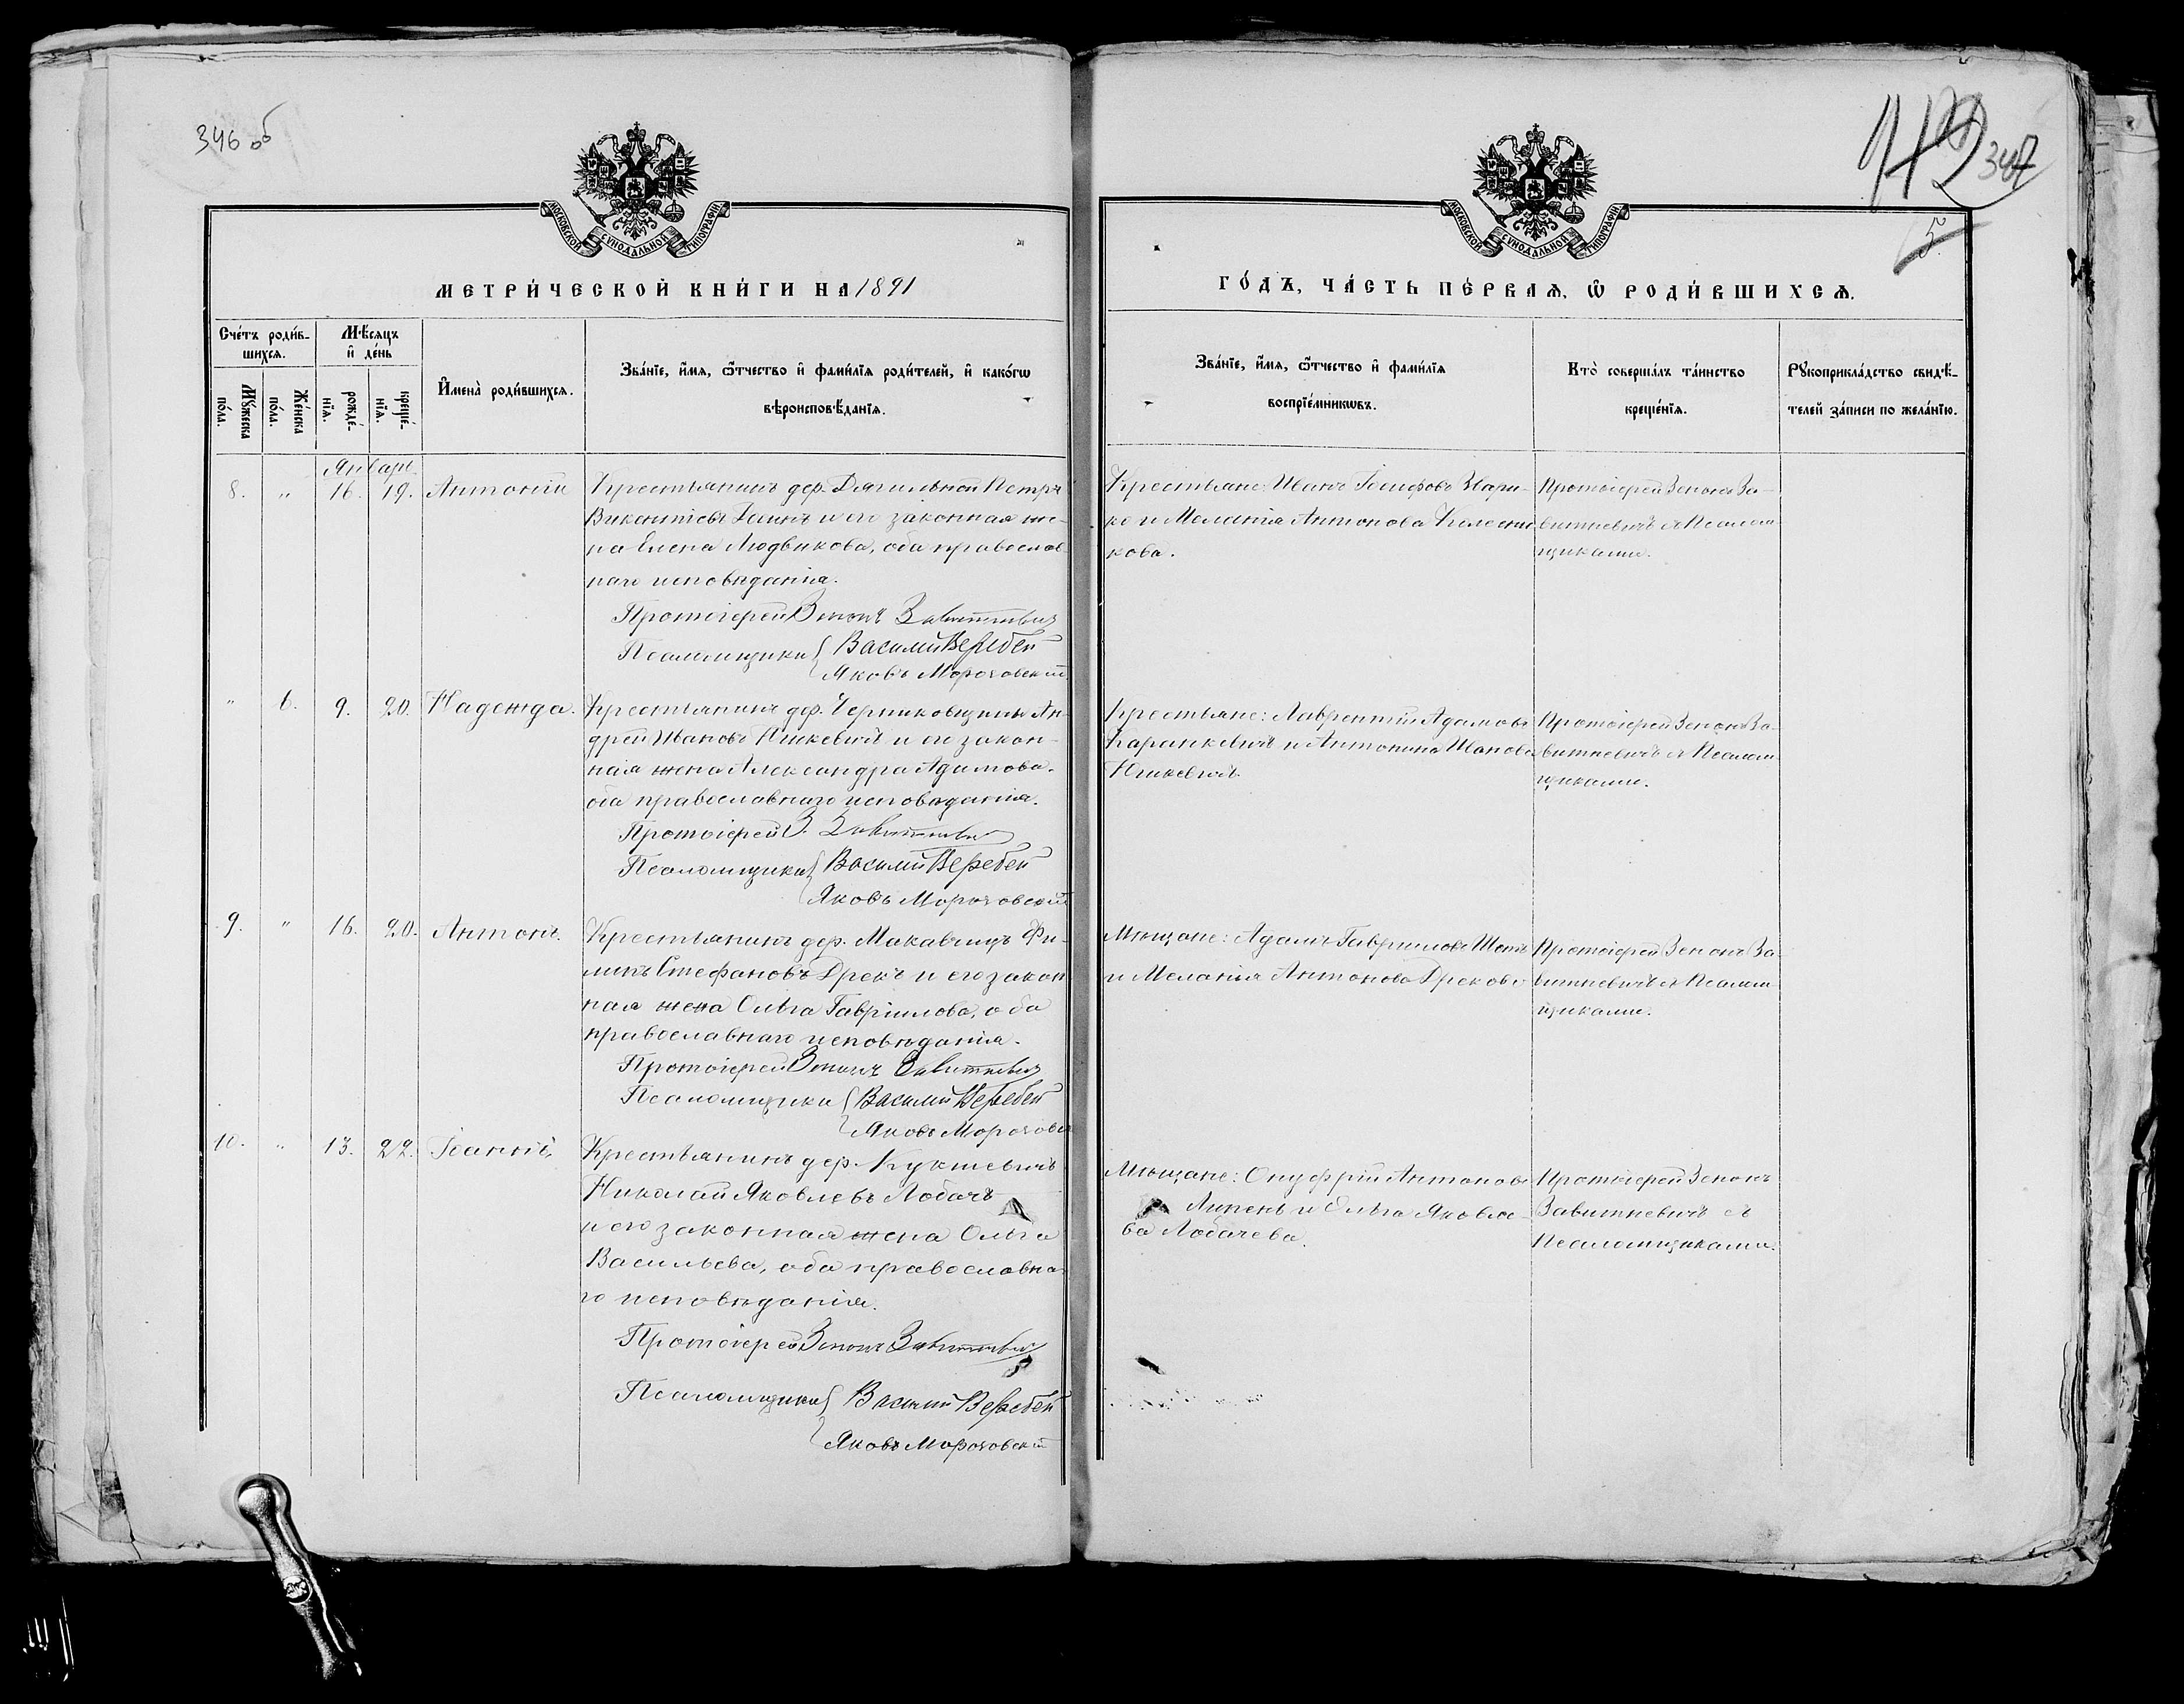 346 об
347
5.
МОСКОВСКОЙ СѴНОДАЛЬНОЙ ТИПОГРАФІИ
МЕТРИ́ЧЕСКОЙ КНИ́ГИ НА 1891
Сче́тъ роди́в-
шихсѧ.
Мѣ́сѧцъ
и҆ де́нь
Мꙋ́жеска
по́ла.
Же́нска
по́ла.
рожде́-
нїѧ.
креще́-
нїѧ.
И҆мена̀ роди́вшихсѧ.
Зва́нїе, и҆́мѧ, ѻ҆́тчество и҆ фами́лїѧ роди́телей, и҆ како́гѡ
вѣроисповѣ́данїѧ.
Январь
8. " 16. 19. Антоній
Крестьянинъ дер. Дягильной Петръ
Викентіевъ и его законная же-
на Елена Людвикова, оба православ-
наго исповѣданія.
Протоіерей Зенонъ Завитневичъ
Псаломщики { Василій Веребей
Яковъ Морозовскій
" 6. 9. 20. Надежда.
Крестьянинъ дер. Черниковщины Ан-
дрей Ивановъ и его закон-
ная жена Александра Адамова.
оба православнаго исповѣданія.
Протоіерей З. Завитневичъ
Псаломщики { Василій Веребей
Яковъ Морозовскій
9. " 16. 20. Антонъ.
Крестьянинъ дер. Макавчицъ Фи-
липъ Стефановъ Дрекъ и его закон
ная жена Ольга Гавріилова, оба
православнаго исповѣданія.
Протоіерей Зенонъ Завитневичъ
Псаломщики { Василій Веребей
Яковъ Морозовс
10. " 13. 22. Іоаннъ.
Крестьянинъ дер. Куктевичъ
Николай Яковлевъ Лобачъ
и его законная жена Ольга
Васильева, оба православна-
го исповѣданія.
Протоіерей Зенонъ Завитневичъ
Псаломщики { Василій Веребей
Яковъ Морозовскій
МОСКОВСКОЙ СѴНОДАЛЬНОЙ ТИПОГРАФІИ
ГО́ДЪ, ЧА́СТЬ ПЕ́РВАѦ, Ѽ РОДИ́ВШИХСѦ.
Зва́нїе, и҆́мѧ, ѻ҆́тчество и҆ фами́лїѧ
воспрїе́мникѡвъ.
Кто̀ соверша́лъ та́инство
креще́нїѧ.
Рꙋкоприкла́дство свидѣ́-
телей за́писи по жела́нїю.
Крестьяне: Иванъ Іосифовъ
и Меланія Антонова Колесни-
кова.
Протоіерей Зенонъ За-
витневичъ съ Псалом-
щиками.
Крестьяне: Лаврентій Адамовъ
Каранкевичъ и Антонина Иванова
Протоіерей Зенонъ За-
витневичъ съ Псалом-
щиками.
Мѣщане: Адамъ Гавриловъ
и Меланія Антонова Дрекова
Протоіерей Зенонъ За-
витневичъ съ Псалом-
щиками.
Мѣщане: Онуфрій Антоновъ
Липень и Ольга Яковле-
ва Лобачева.
Протоіерей Зенонъ
Завитневичъ съ
Псаломщиками.